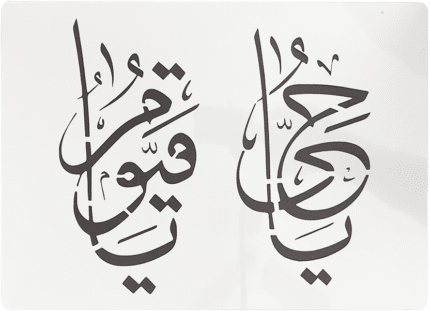 يا حي
يا قيوم